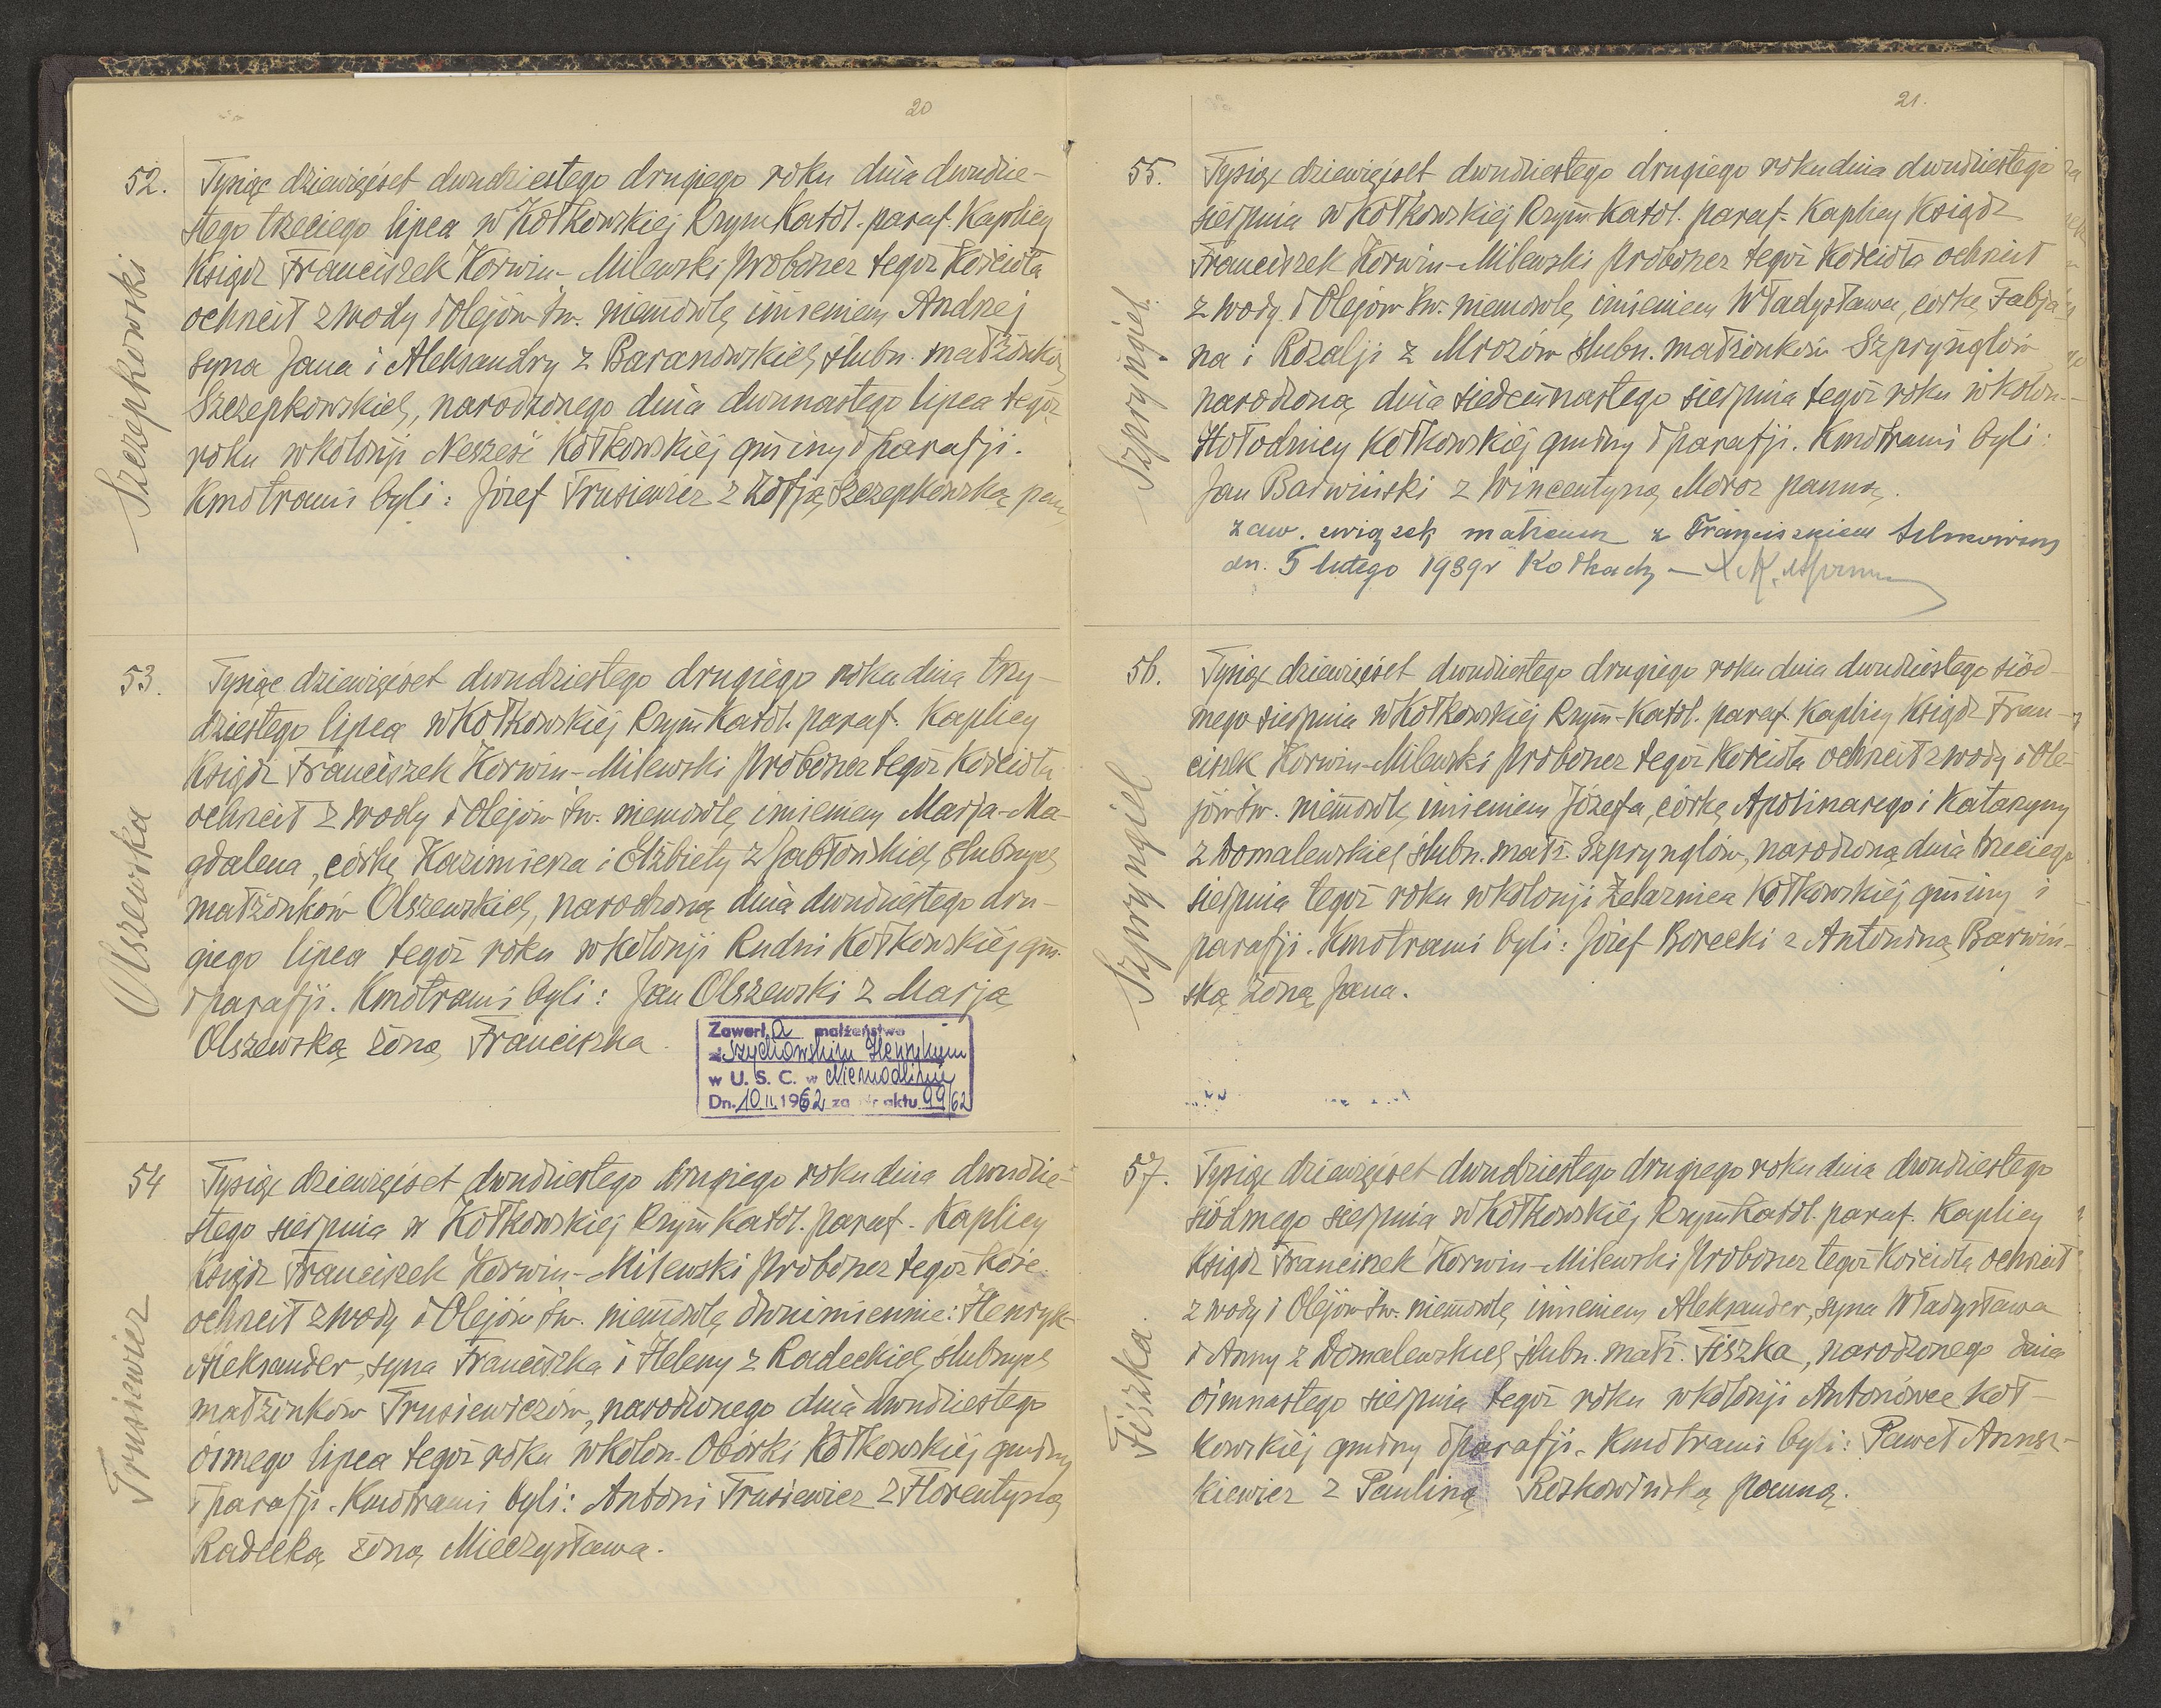 20
52.
Szczepkowski
Tysiąc dziewięćset dwudziestego drugiego roku dnia dwudzie-
stego trzeciego lipca w Kołkowskiej Rzym Katol. paraf. Kaplicy
Ksiądz Franciszek Korwin-Milewski Proboszcz tegoż Kościoła
ochrzcił z wody i Olejów św. niemowlę imieniem Andrzej
syna Jana i Aleksandry z Baranowskich, ślubn. małżonków
Szczepkowskich, narodzonego dnia dwunastego lipca tegoż
roku w kolonji Neszeri Kołkowskiej gminy i parafji.
Kmotrami byli: Józef Trusiewicz z Zofją Szczepkowską pan.
53.
Olszewska
Tysiąc dziewięćset dwudziestego drugiego roku dnia trzy-
dziestego lipca w Kołkowskiej Rzym Katol. paraf. Kaplicy
Ksiądz Franciszek Korwin-Milewski Proboszcz tegoż Kościoła
ochrzcił z wody i Olejów św. niemowlę imieniem Marja-Ma-
gdalena, córkę Kazimierza i Elżbiety z Jabłońskich, ślubnych
małżonków Olszewskich, narodzoną dnia dwudziestego dru-
giego lipca tegoż roku w kolonji Rudni Kołkowskiej gm.
i parafji. Kmotrami byli: Jan Olszewski z Marją
Olszewską żoną Franciszka.
Zawarł a małżeństwo
z Szychowskim Henrykiem
w U. S. C. w Niemodlinie
Dn. 10.II.1962 za nr aktu 99/62
54
Trusiewicz
Tysiąc dziewięćset dwudziestego drugiego roku dnia dwudzie-
stego sierpnia w Kołkowskiej Rzym Katol. paraf. Kaplicy
Ksiądz Franciszek Korwin-Milewski Proboszcz tegoż Kośc.
ochrzcił z wody i Olejów św. niemowlę dwuimiennie: Henryk-
Aleksander, syna Franciszka i Heleny z Radeckich, ślubnych
małżonków Trusiewiczów, narodzonego dnia dwudziestego
ósmego lipca tegoż roku w kolon. Obórki Kołkowskiej gminy
i parafji. Kmotrami byli: Antoni Trusiewicz z Florentyną
Radecką żoną Mieczysława.
21.
55.
Szpryngiel.
Tysiąc dziewięćset dwudziestego drugiego roku dnia dwudziestego
sierpnia w Kołkowskiej Rzym Katol. paraf. Kaplicy Ksiądz
Franciszek Korwin-Milewski Proboszcz tegoż Kościoła ochrzcił
z wody i Olejów św. niemowlę imieniem Władysława, córkę Fabja-
na i Rozalji z Mrozów ślubn. małżonków Szprynglów
narodzoną dnia siedemnastego sierpnia tegoż roku w kolon.
Hołodnicy Kołkowskiej gminy i parafji. Kmotrami byli:
Jan Barwiński z Wincentyną Moroz panną.
zaw. związek małżeński z Franciszkiem
dn. 5 lutego 1939r Kołkach
56.
Szpryngiel
Tysiąc dziewięćset dwudziestego drugiego roku dnia dwudziestego siód-
mego sierpnia w Kołkowskiej Rzym-Katol. paraf. Kaplicy Ksiądz Fran-
ciszek Korwin-Milewski Proboszcz tegoż Kościoła ochrzcił z wody i Ole-
jów św. niemowlę imieniem Józefa, córkę Apolinarego i Katarzyny
z Domalewskich ślubn. małż. Szprynglów, narodzoną dnia trzeciego
sierpnia tegoż roku w kolonji Żelaznica Kołkowskiej gminy i
parafji. Kmotrami byli: Józef Borecki z Antoniną Barwiń-
ską żoną Jana.
57.
Fiszka.
Tysiąc dziewięćset dwudziestego drugiego roku dnia dwudziestego
siódmego sierpnia w Kołkowskiej Rzym Katol. paraf. Kaplicy
Ksiądz Franciszek Korwin-Milewski Proboszcz tegoż Kościoła ochrzcił
z wody i Olejów św. niemowlę imieniem Aleksander, syna Władysława
i Anny z Domalewskich ślubn. małż. Fiszka, narodzonego dnia
ośmnastego sierpnia tegoż roku w kolonji Antonówce Koł-
kowskiej gminy i parafji. Kmotrami byli: Paweł Annusz-
kiewicz z Pauliną Reszkowińską panną.